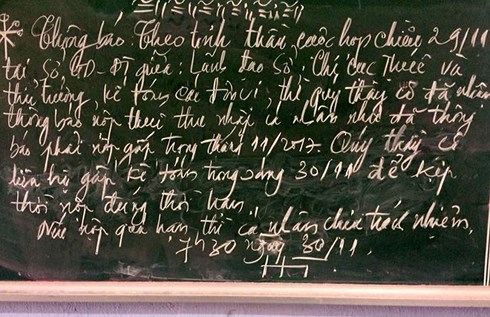 Thông báo: Theo tinh thần cuộc họp chiều 29/11
tại Sở GD-ĐT giữa: Lãnh đạo Sở, Chi cục thuế và
thủ trưởng, kế toán các đơn vị, thì quý thầy cô đã nhận
thông báo nộp thuế thu nhập cá nhân như đã thông
báo phải nộp gấp trong tháng 11/2017. Quý thầy cô
liên hệ gấp kế toán trong sáng 30/11 để kịp
thời nộp đúng thời hạn.
Nếu nộp quá hạn, thì cá nhân chịu trách nhiệm.
7h30 ngày 30/11.